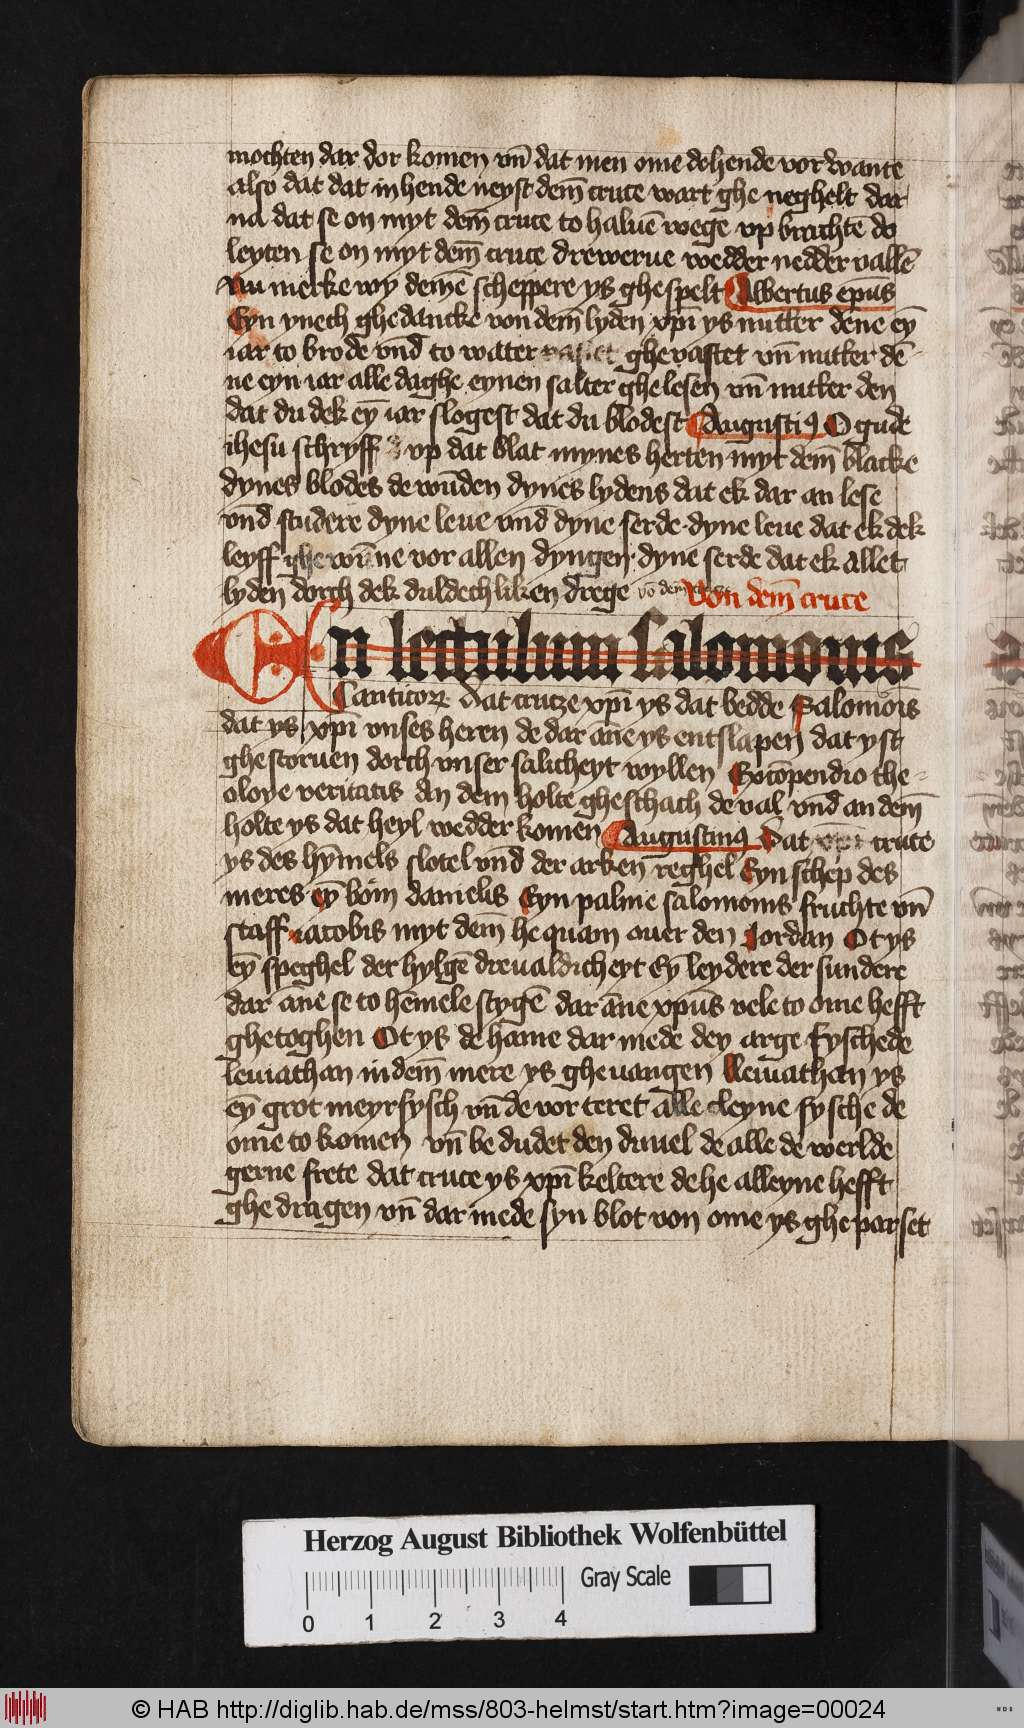 mochten dar dor komen vn̄ dat men ome de hende vor wante
also dat dat in hende neyst dem̄ cruce wart ghe neghelt dar
na dat se on myt dem̄ cruce to haluē wege vp brachtē do
leyten se on myt dem̄ cruce drewerue wedder nedder vallē
Nu merke wy demē scheppere ys ghe spelt Albertus ep̄us
Eyn ynech ghedancke von dem̄ lyden xp̄i ys nutter dene eȳ
iar to brode vn̄d to water ghevastet vn̄ nutter dē
ne eyn iar alle daghe eynen salter ghelesen vn̄ nutter den
dat du dek eȳ iar slogest dat du blodest Augustiꝰ O gude
ihesu schryff vp dat blat mynes herten myt dem̄ blacke
dynes blodes de wūden dynes lydens dat ek dar an lese
vn̄d studere dyne leue vn̄d dyne serde dyne leue dat ek dek
leyff ghewūne vor allen dyngen dyne serde dat ek allet
lyden dorch dek duldechliken drege vō dem Von dem̄ cruce
En lectulum salomonis
Canticoꝝ Dat crutze xp̄i ys dat bedde Salomoīs
dat ys xp̄i vnses heren de dar āne ys entslapen dat yst
ghestoruen dorch vnser salicheyt wyllen Ex cōpendio the
oloye veritatis An dem holte gheschach de val vn̄d an dem̄
holte ys dat heyl wedder komen Augustinꝰ Dat xp̄i cruce
ys des hȳmels slotel vn̄d der arken reghel Eyn schep des
meres eȳ bom danielis Eyn palme salomonis fruchte vn̄
staff iacobis myt dem̄ he quam ouer den Jordan Ot ys
eȳ speghel der hylgē dreualdicheyt Eȳ leydere der sundere
dar āne se to hēmele stygē dar āne xp̄us vele to ome hefft
ghetoghen Ot ys de hame dar mede dey arge fyschede
leuiathan in dem̄ mere ys gheuangen Leuiathan ys
eȳ grot meyrfysch vn̄ de vorteret alle cleyne fysche de
ome to komen vn̄ be dudet den duuel de alle de werlde
gerne frete dat cruce ys xp̄i keltere de he alleyne hefft
ghe dragen vn̄ dar mede syn blot von ome ys ghe parset
Herzog August Bibliothek Wolfenbüttel
Gray Scale
0 1 2 3 4
© HAB http://diglib.hab.de/mss/803-helmst/start.htm?image=00024